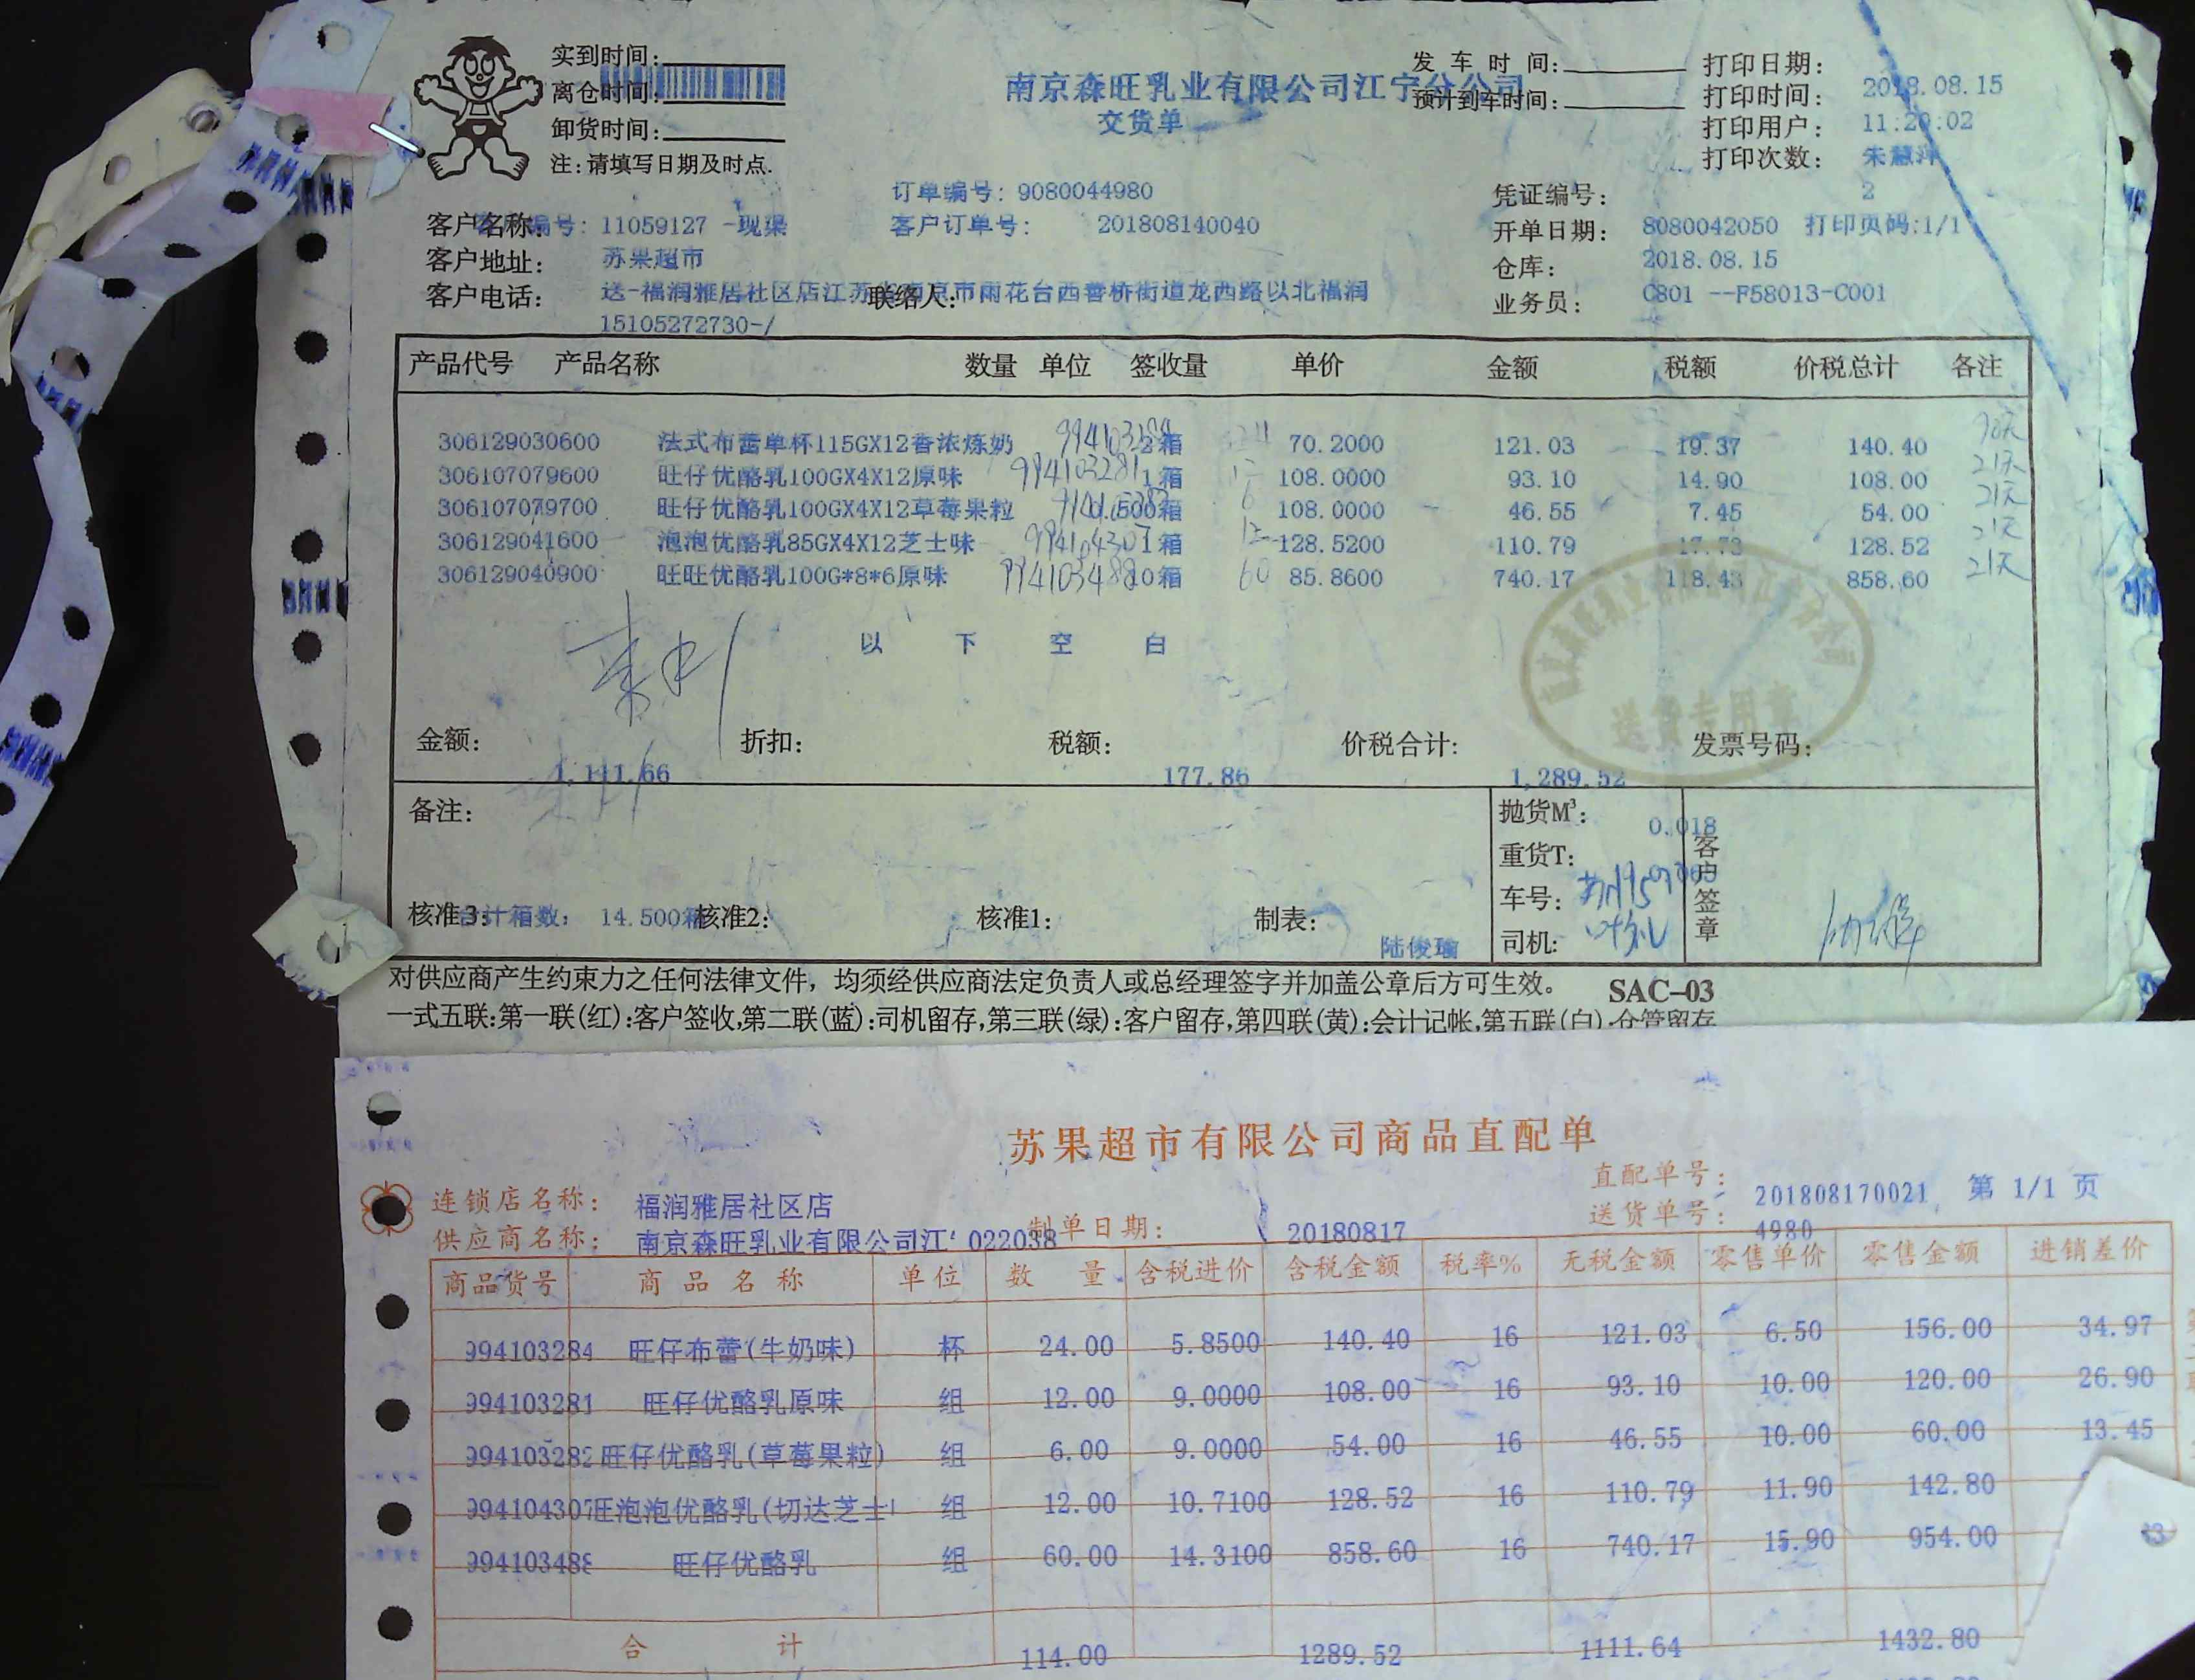 实到时间:
离仓时间:
卸货时间:
注:请填写日期及时点.
南京森旺乳业有限公司江宁分公司
交货单
发 车 时 间:
预计到车时间:
打印日期: 2018.08.15
打印时间: 11:20:02
打印用户: 朱慧萍
打印次数: 2
订单编号: 9080044980
凭证编号: 8080042050 打印页码:1/1
客户名称: 编号: 11059127 -现渠
客户订单号: 201808140040
开单日期: 2018.08.15
客户地址: 苏果超市
仓库: C801 --F58013-C001
客户电话: 送-福润雅居社区店江苏省南京市雨花台西善桥街道龙西路以北福润
联络人:
业务员:
15105272730-/
产品代号 产品名称 数量 单位 签收量 单价 金额 税额 价税总计 各注
306129030600 法式布蕾单杯115GX12香浓炼奶 994103284 2箱 70.2000 121.03 19.37 140.40
306107079600 旺仔优酪乳100GX4X12原味 994103281 1箱 12 108.0000 93.10 14.90 108.00 21天
306107079700 旺仔优酪乳100GX4X12草莓果粒 .500箱 6 108.0000 46.55 7.45 54.00 21天
306129041600 泡泡优酪乳85GX4X12芝士味 99410430 1箱 12 128.5200 110.79 17.73 128.52 21天
306129040900 旺旺优酪乳100G*8*6原味 99410348 10箱 60 85.8600 740.17 118.43 858.60 21天
以 下 空 白
送货专用章
金额: 折扣: 税额: 价税合计: 发票号码:
1,111.66 177.86 1,289.52
备注:
抛货M³: 0.018
重货T:
车号:
司机:
客户签章
核准3: 合计箱数: 14.500箱 核准2: 核准1: 制表: 陆俊瑜
对供应商产生约束力之任何法律文件，均须经供应商法定负责人或总经理签字并加盖公章后方可生效。 SAC-03
一式五联:第一联(红):客户签收,第二联(蓝):司机留存,第三联(绿):客户留存,第四联(黄):会计记帐,第五联(白):仓管留存
苏果超市有限公司商品直配单
直配单号: 201808170021 第 1/1 页
连锁店名称: 福润雅居社区店
送货单号: 4980
供应商名称: 南京森旺乳业有限公司江' 022038 制单日期: 20180817
商品货号 商品名称 单位 数 量 含税进价 含税金额 税率% 无税金额 零售单价 零售金额 进销差价
994103284 旺仔布蕾(牛奶味) 杯 24.00 5.8500 140.40 16 121.03 6.50 156.00 34.97
994103281 旺仔优酪乳原味 组 12.00 9.0000 108.00 16 93.10 10.00 120.00 26.90
994103282 旺仔优酪乳(草莓果粒) 组 6.00 9.0000 54.00 16 46.55 10.00 60.00 13.45
994104307 旺泡泡优酪乳(切达芝士 组 12.00 10.7100 128.52 16 110.79 11.90 142.80
994103488 旺仔优酪乳 组 60.00 14.3100 858.60 16 740.17 15.90 954.00
合 计 114.00 1289.52 1111.64 1432.80